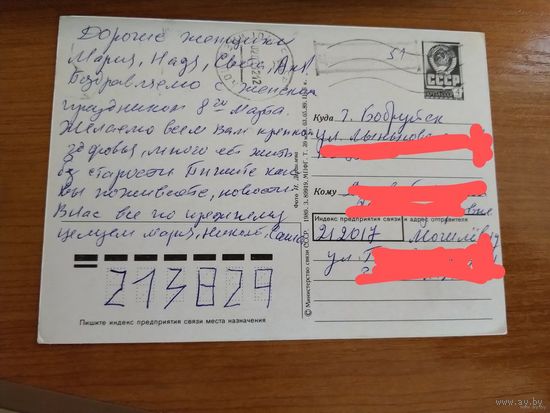 Дорогие женщины
Мария, Надя, Света, Аня.
Поздравляемо с женским
праздником 8го Марта.
Желаемо всем вам крепкого
здоровья, много лет жить
до старости Пишите как
вы поживаете, новости
В нас все по прежнему
целуем Мария, Никол. Саша
213829
Пишите индекс предприятия связи места назначения
51
СССР
Куда г. Бобруйск
ул.
Кому
Индекс предприятия связи и адрес отправителя
212017 Могилев
ул.
© Министерство связи СССР. 1989.
Фото И.
www.ay.by